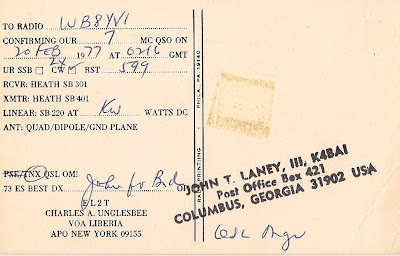 TO RADIO WB8YVI
CONFIRMING OUR 7 MC QSO ON
20 FEB 1977 AT 0216 GMT
UR SSB CW 2X RST 599
RCVR: HEATH SB 301
XMTR: HEATH SB 401
LINEAR: SB 220 AT KW WATTS DC
ANT: QUAD/DIPOLE/GND PLANE
PSE/TNX QSL OM!
73 ES BEST DX John for Bud
EL2T
CHARLES A. UNGLESBEE
VOA LIBERIA
APO NEW YORK 09155
PRINTING - PHILA, PA 19140
JOHN T. LANEY, III, K4BAI
Post Office Box 421
COLUMBUS, GEORGIA 31902 USA
QSL Mgr